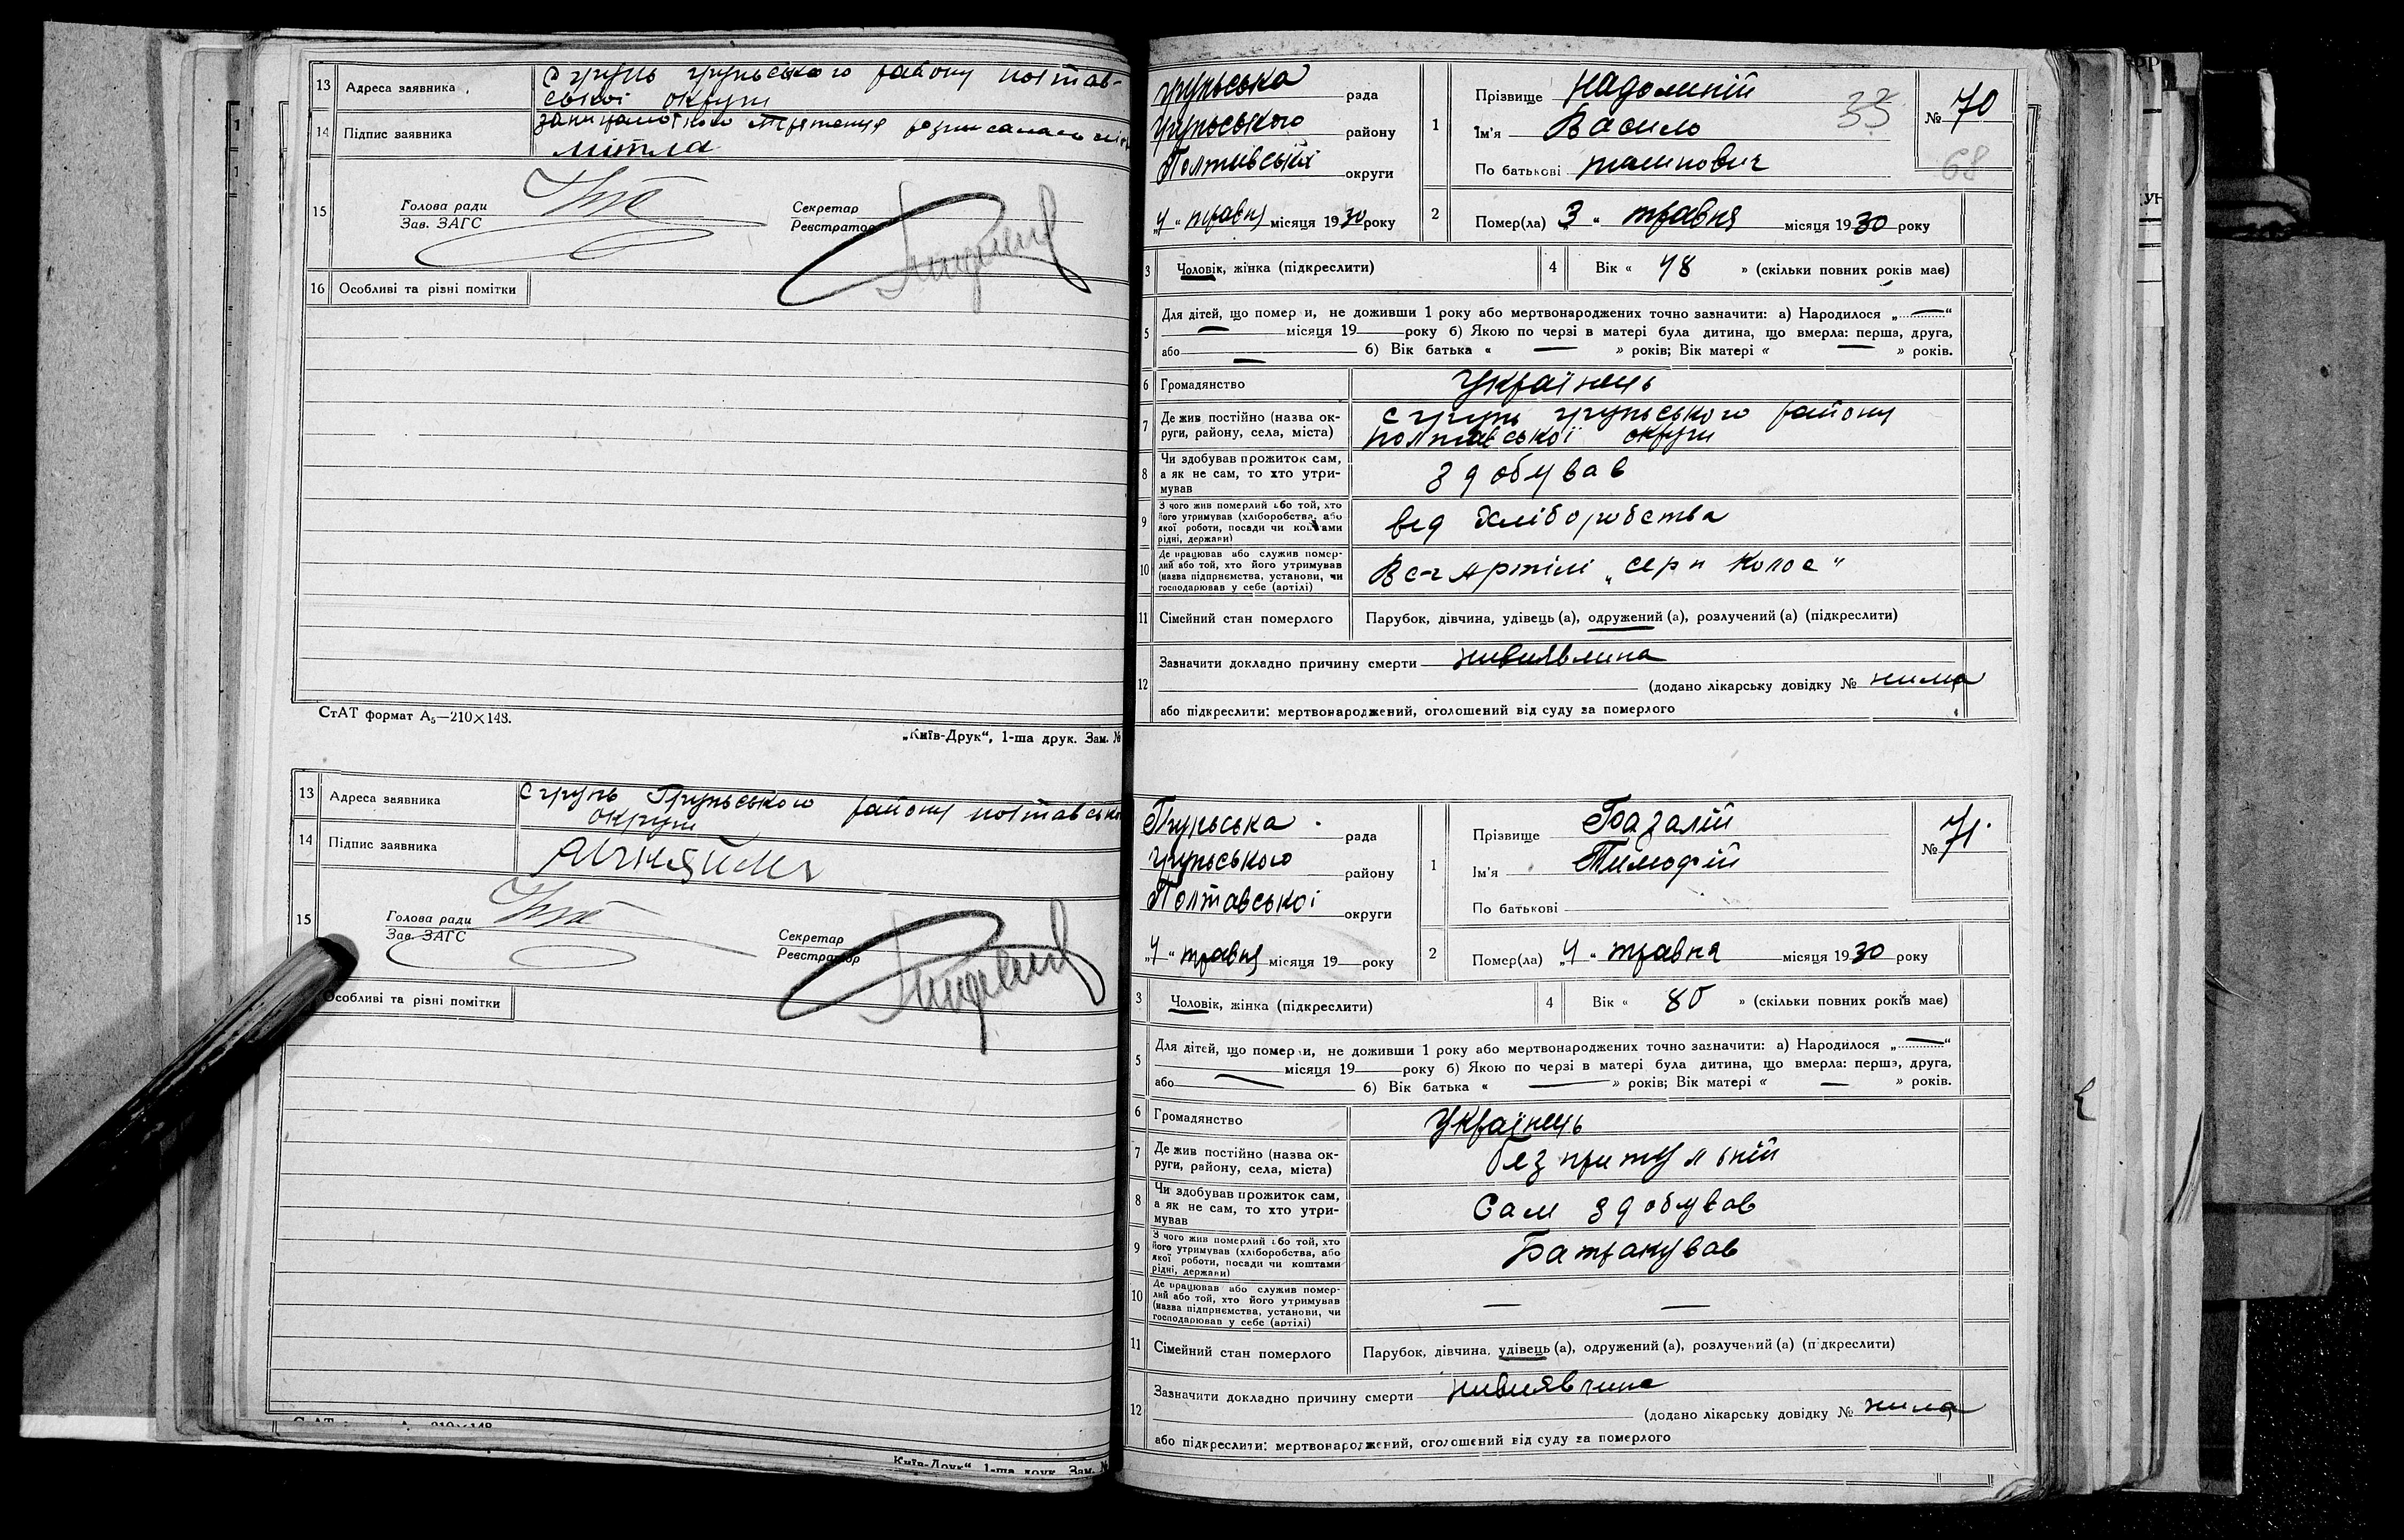 13 Адреса заявника с грунь грунського району полтав-
ської округи
14 Підпис заявника
Мітла
15 Голова ради
Зав. ЗАГС
Секретар
Реєстратор
16 Особливі та різні помітки
СтАТ формат А₅—210×148.
„Київ-Друк“, 1-ша друк. Зам. №
13 Адреса заявника с грунь Грунського району полтавсько
округи
14 Підпис заявника
15 Голова ради
Зав. ЗАГС
Секретар
Реєстратор
Особливі та різні помітки
Київ-Друк“, 1-ша друк. Зам. №
грунська рада
грунського району
Полтавської округи
„4“ травня місяця 1930 року
1 Прізвище Надолний
Ім'я Василь
По батькові
№ 70
33
68
2 Помер(ла) 3 “ травня місяця 1930 року
3 Чоловік, жінка (підкреслити)
4 Вік « 48 » (скільки повних років має)
5 Для дітей, що померли, не доживши 1 року або мертвонароджених точно зазначити: а) Народилося „ — “
— місяця 19 року б) Якою по черзі в матері була дитина, що вмерла: перша, друга,
або — б) Вік батька « — » років; Вік матері « — » років.
6 Громадянство Українець
7 Де жив постійно (назва ок-
руги, району, села, міста)
с грунь грунського району
полтавської округи
8 Чи здобував прожиток сам,
а як не сам, то хто утри-
мував
здобував
9 З чого жив померлий або той, хто
його утримував (хліборобства, або
якої роботи, посади чи коштами
рідні, держави)
вид хліборобства
10 Де працював або служив помер-
лий або той, хто його утримував
(назва підпрнємства, установи, чи
господарював у себе (артілі)
В с-г Артілі „серп Колос“
11 Сімейний стан померлого Парубок, дівчина, удівець (а), одружений (а), розлучений (а) (підкреслити)
12 Зазначити докладно причину смерти нивиявлина
(додано лікарську довідку № нима
або підкреслити: мертвонароджений, оголошений від суду за померлого
Грунська рада
грунського району
Полтавської округи
„4“ травня місяця 19 — року
1 Прізвище Багалій
Ім'я Тимофій
По батькові
№ 71
2 Помер(ла) „4“ травня місяця 1930 року
3 Чоловік, жінка (підкреслити)
4 Вік « 80 » (скільки повних років має)
5 Для дітей, що померли, не доживши 1 року або мертвонароджених точно зазначити: а) Народилося „ — “
місяця 19 року б) Якою по черзі в матері була дитина, що вмерла: перша, друга,
або — б) Вік батька « — » років; Вік матері « — » років.
6 Громадянство Українець
7 Де жив постійно (назва ок-
руги, району, села, міста)
безпритульний
8 Чи здобував прожиток сам,
а як не сам, то хто утри-
мував
Сам здобував
9 З чого жив померлий або той, хто
його утримував (хліборобства, або
якої роботи, посади чи коштами
рідні, держави)
Батракував
10 Де працював або служив помер-
лий або той, хто його утримував
(назва підпрнємства, установи, чи
господарював у себе (артілі)
— —
11 Сімейний стан померлого Парубок, дівчина, удівець (а), одружений (а), розлучений (а) (підкреслити)
12 Зазначити докладно причину смерти нивиявлина
(додано лікарську довідку № нима
або підкреслити: мертвонароджений, оголошений від суду за померлого